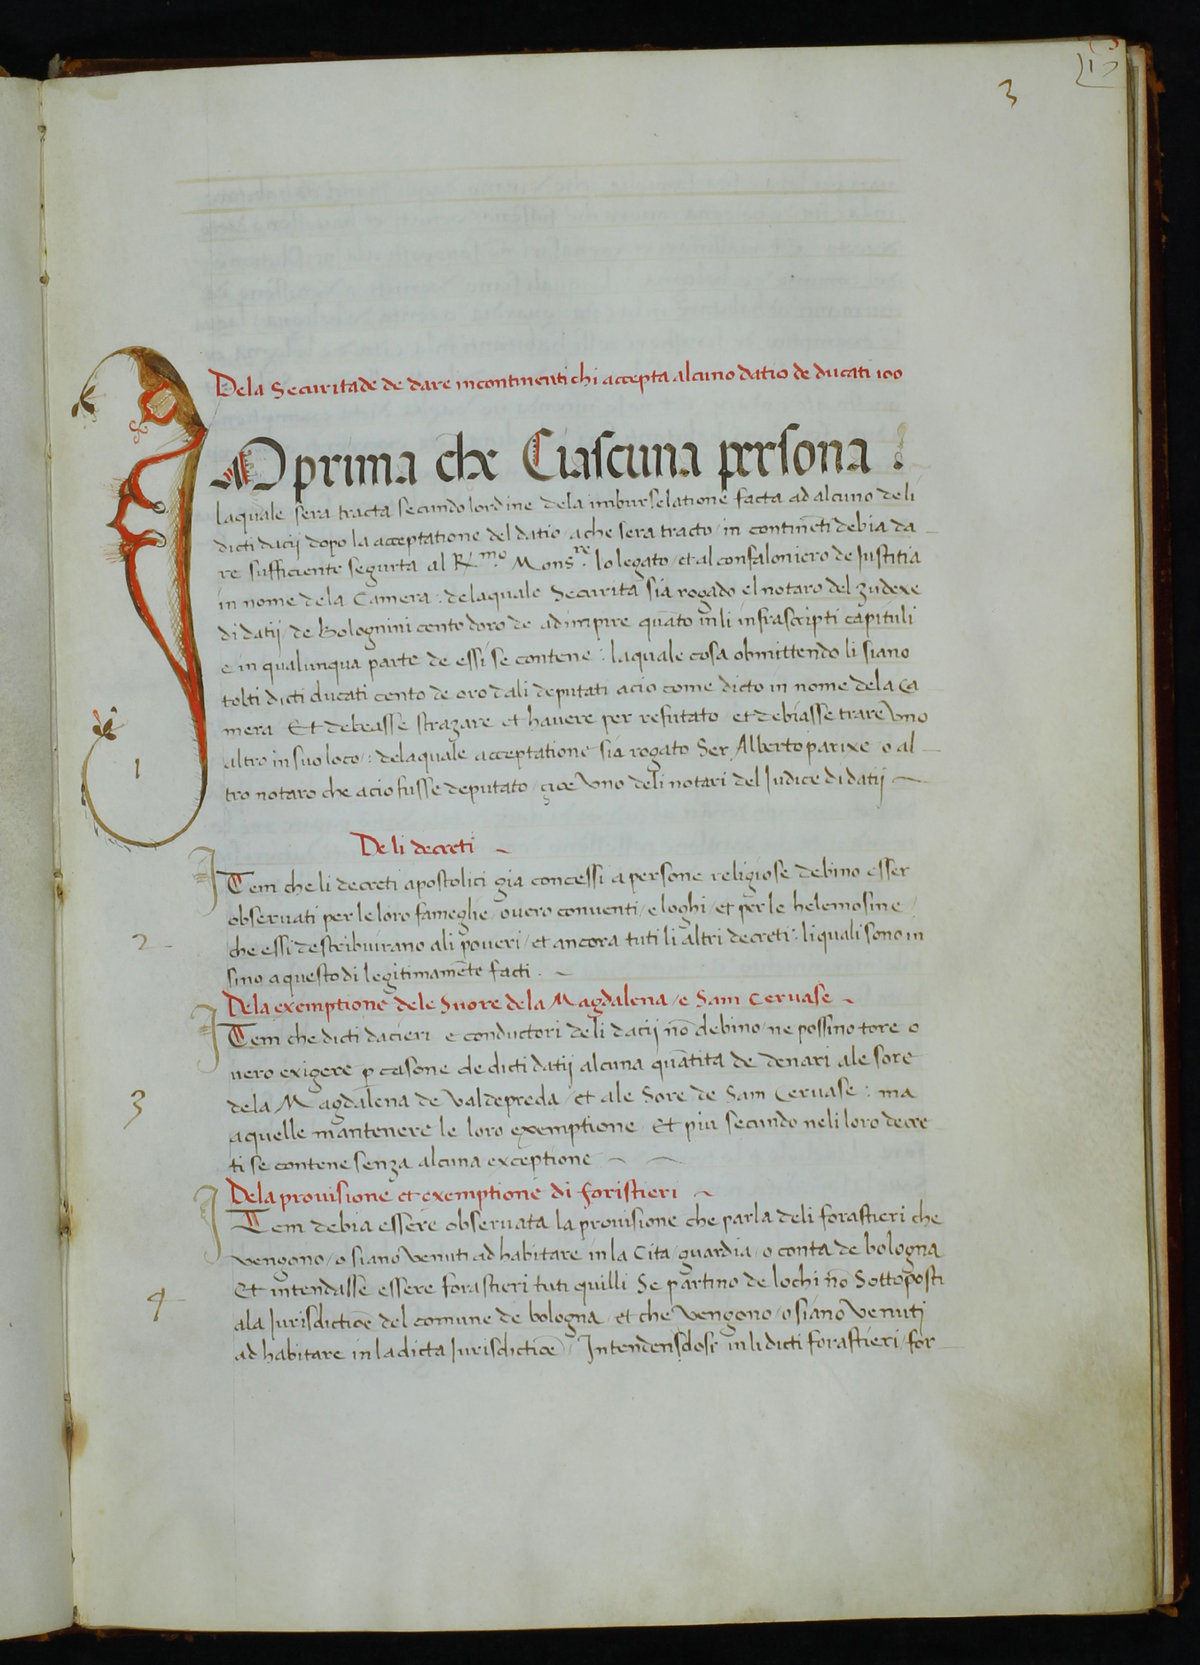 3
Dela Securitade de dare incontinenti chi accepta alcuno datio de ducati 100
IN prima che Ciascuna persona
laquale sera tracta secundo lordine dela imburselatione facta ad alcuno deli
dicti dacij dopo la acceptatione del datio ache sera tracto / in continẽti debia da
re sufficiente segurta al R.mo Monsre lo legato / et al confaloniero de Justitia
in nome dela Camera : delaquale Securita sia rogado el notaro del zudexe
di datij / de Bolognini cento doro de adimpire quãto in li infrascripti capituli
e in qualunqua parte de essi se contene : laquale cosa obmittendo li siano
tolti dicti ducati cento de oro dali deputati acio come dicto in nome dela Ca
mera Et debeasse strazare et havere per refutato et debiasse trare Uno
altro in suo loco : delaquale acceptatione sia rogato Ser Alberto parixe o al
tro notaro che acio fusse deputato / çioe Uno deli notari del Judice di datij
1
Deli decreti
ITem che li decreti apostolici gia concessi a persone religiose debino esser
observati per le loro fameglie / overo conventi / e loghi / et per le helemosine /
che essi destribuirano ali poveri / et ancora tuti li altri decreti : liquali sono in
2
sino aquesto di legitimamẽte facti .
Dela exemptione dele Suore dela Magdalena / e Sam Cervase
ITem che dicti dacieri e conductori deli dacij nõ debino / ne possino tore o
vero exigere p casone de dicti datij alcuna quãtita de denari ale sore
3
dela Magdalena de Valdepreda / et ale Sore de Sam Cervase : ma
aquelle mantenere le loro exemptione Et piu secundo neli loro decre
ti se contene senza alcuna exceptione
Dela provisione et exemptione di foristieri
ITem debia essere observata la provisione che parla deli forastieri che
vengono / o siano Venuti ad habitare in la Cita / guardia / o conta de bologna
Et intendisse essere forastieri tuti quilli Se partino de lochi nõ Sottoposti
4
ala Jurisdictiõe del comune de bologna / et che Vengono / o siano Venuti
ad habitare in la dicta Jurisdictiõe / Intendendosi in li dicti forastieri / for